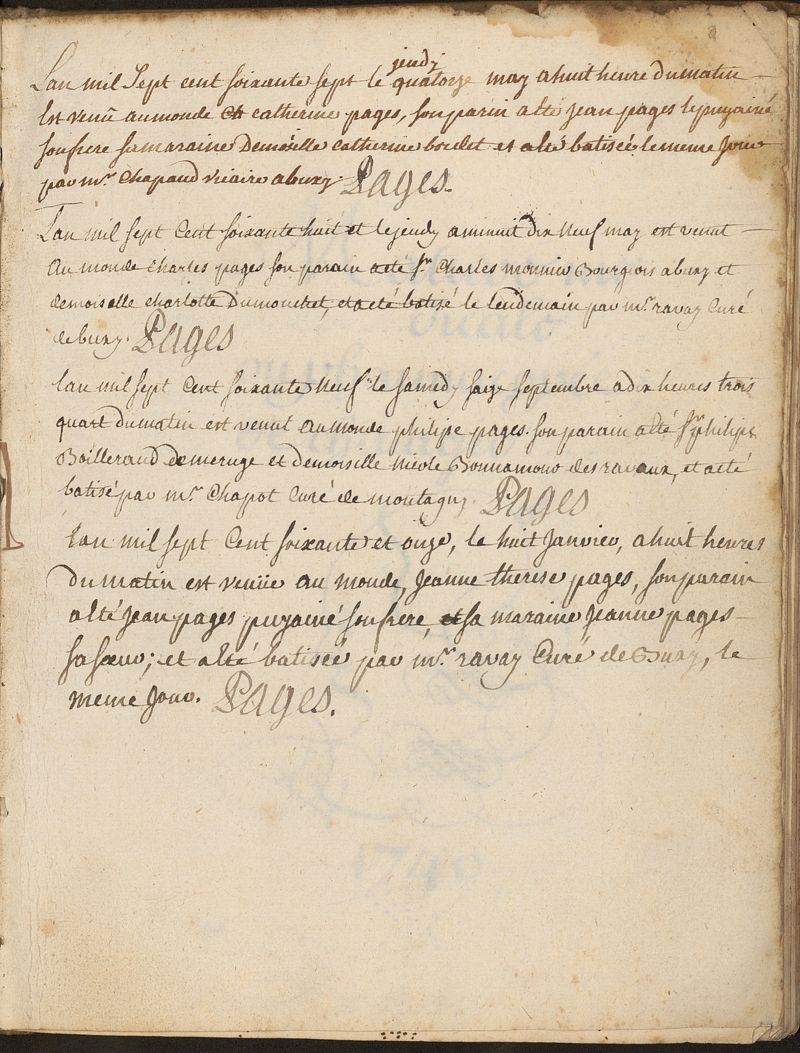 jeudy
Lan mil Sept cent soixante sept le quatorze may a huit heure du matin
Est venüe au monde catherine pages, son parin a eté jean pages le puy ainé
son frere sa maraine Demoiselle Catherine et a eté batisée le meme Jour
par mr. Chapaud vicaire a buxy. Pages.
Lan mil sept Cent soixante huit et le jeudy a minuit dix Neuf may est venut
Au monde Charles pages son parain a eté Sr. Charles monnier Bourgois a buxy et
demoiselle charlotte Dumouchet, et a eté batisé le lendemain par mr. ravay Curé
de buxy. Pages
lan mil sept Cent soixante Neuf le samedy saize septembre a dix heures trois
quart du matin est venut au monde philipe pages. son parain a eté Sr. philipe
Boillerand de meruge et demoiselle Nicole Bonnamour des ravaux, et a eté
batisé par mr. Chapot Curé de montagny. Pages
lan mil sept Cent soixante et onze, le huit Janvier, a huit heures
Du matin est venüe au monde, Jeanne therese pages, son parain
a eté Jean pages puy ainé son frere, et sa maraine Jeanne pages
sa sœur; et a eté batisée par mr. ravay Curé de Buxy, le
meme Jour. Pages.
1740